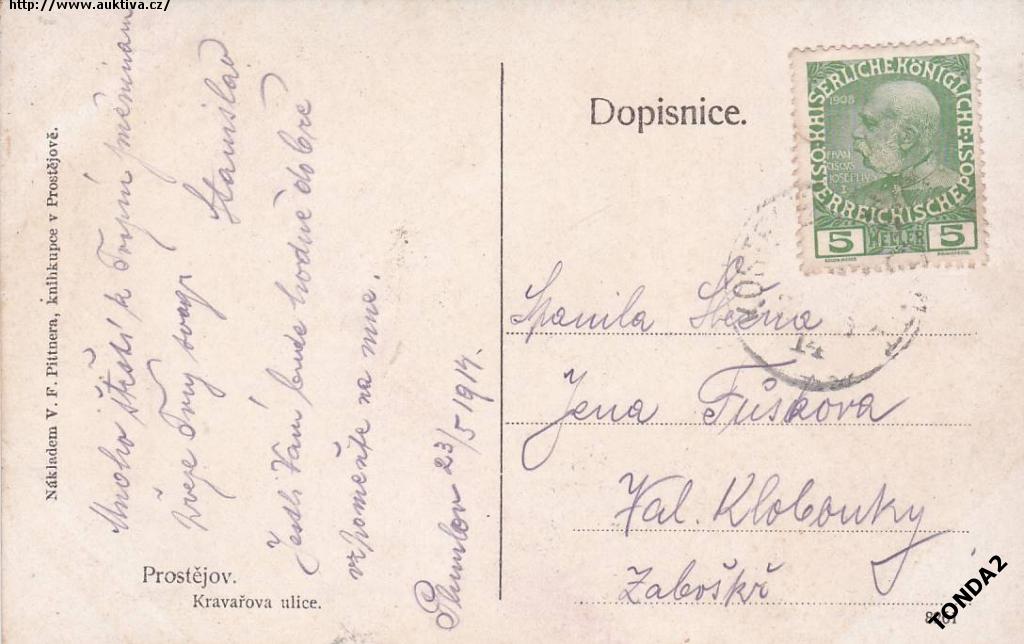 http://www.auktiva.cz/
Nákladem V. F. Pittnera, knihkupce v Prostějově.
Mnoho štěstí k Tvým jmeninám
přeje Tvůj švagr
Stanislav
Jestli Vám bude hodně dobře
vzpomeňte na mne.
Plumlov 23/5 1914.
Prostějov.
Kravařova ulice.
Dopisnice.
KAISERLICHE KÖNIGLICHE ÖSTERREICHISCHE POST
1908
FRAN
CISCVS
IOSEPHVS
I
5 HELLER 5
14
Spanilá Slečna
Jena Fušková
Val. Klobouky
TONDA2